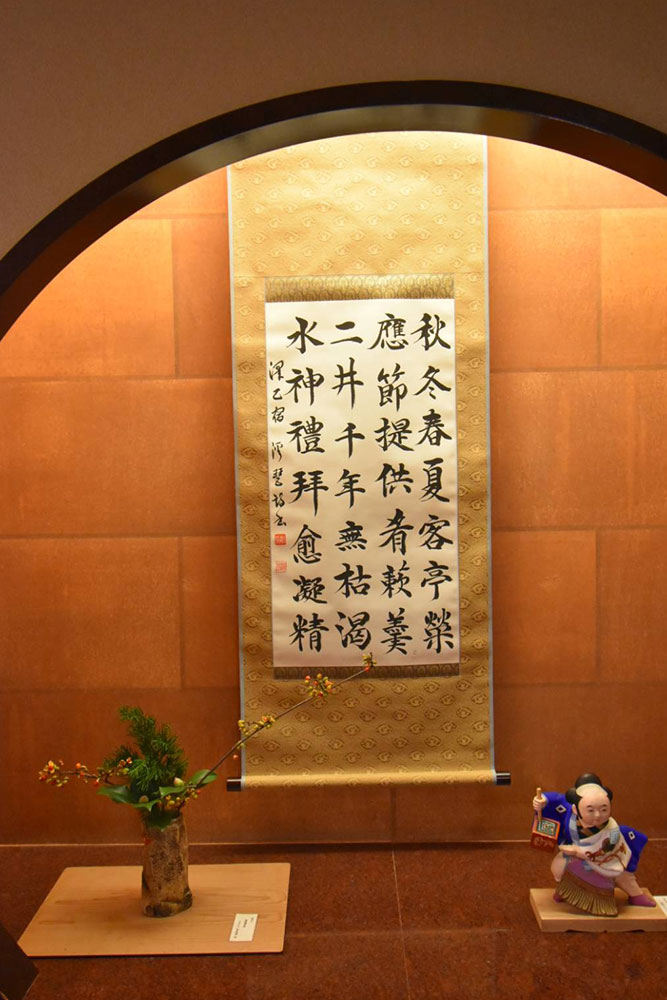 秋冬春夏客亭榮
應節提供肴蔌羹
二井千年無枯渴
水神禮拜愈凝精